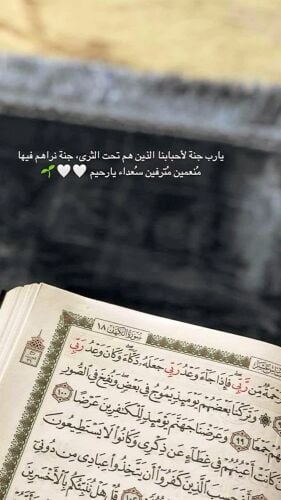 يارب جنة لأحبابنا الذين هم تحت الثرى، جنة نراهم فيها
مُنعمين مُترفين سُعداء يارحيم 🤍🤍🌱
سورة الكهف ١٨
رحمة من ربي فإذا جاء وعد ربي جعله دكاء وكان وعد ربي
وتركنا بعضهم يومئذ يموج في بعض ونفخ في الصور
جمعا ٩٩ وعرضنا جهنم يومئذ للكفرين عرضا ١٠٠
كانت أعينهم في غطاء عن ذكري وكانوا لا يستطيعون
الذين كفروا أن يتخذوا عبادي من دوني
قل هل ننبئكم بالأخسرين